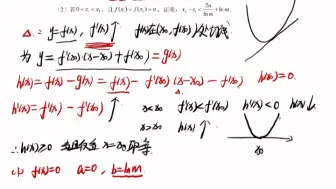 (2) 若 0<x₁<x₂, 且 f(x₁)=f(x₂)=a, 证明: x₂-x₁<2a/ln m+ln m.
△. ∵ y=f(x), f'(x)↑ f(x)在(x₀, f(x₀))处切线
为 y=f'(x₀)·(x-x₀)+f(x₀)=g(x)
h(x)=f(x)-g(x)=f(x)-f'(x₀)(x-x₀)-f(x₀) h(x₀)=0.
h'(x)=f'(x)-f'(x₀)↑ x<x₀ f'(x)<f'(x₀) h'(x)<0 h(x)↓
x>x₀ h(x)↑
∴h(x)≥0 当且仅当 x=x₀取等
(1) f(x)=0 a=0, b=ln m.
x₀